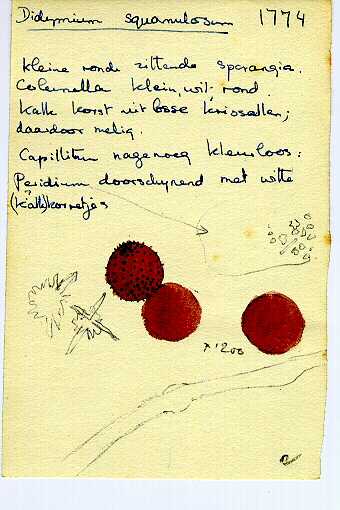 Didymium squamulosum 1774
Kleine ronde zittende sporangia.
Columella klein, wit, rond.
Kalk korst uit losse kristallen;
daardoor melig.
Capillitium nagenoeg kleurloos:
Peridium doorschynend met witte
(kalk)korreltjes
× 1200